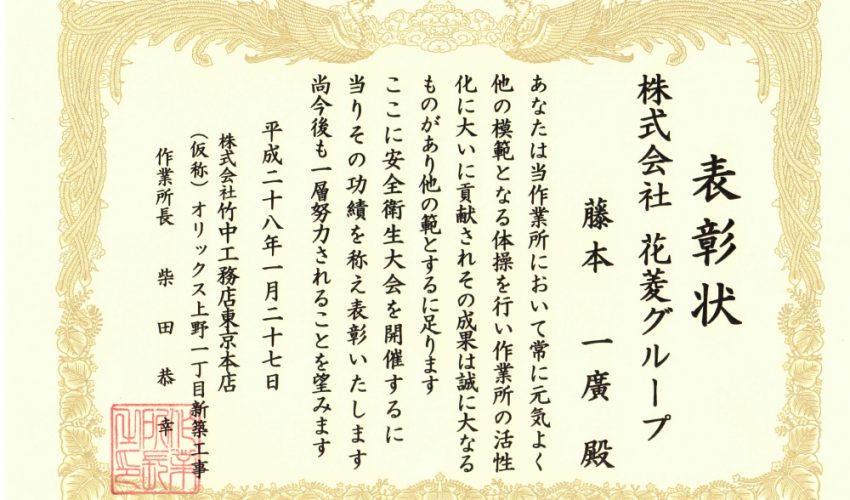 表彰状
株式会社 花菱グループ
藤本 一廣 殿
あなたは当作業所において常に元気よく
他の模範となる体操を行い作業所の活性
化に大いに貢献されその成果は誠に大なる
ものがあり他の範とするに足ります
ここに安全衛生大会を開催するに
当りその功績を称え表彰いたします
尚今後も一層努力されることを望みます
平成二十八年一月二十七日
株式会社竹中工務店東京本店
（仮称）オリックス上野一丁目新築工事
作業所長 柴田恭幸